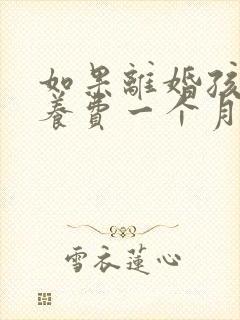 如果離婚孩
養費一个月
雪衣蓮心